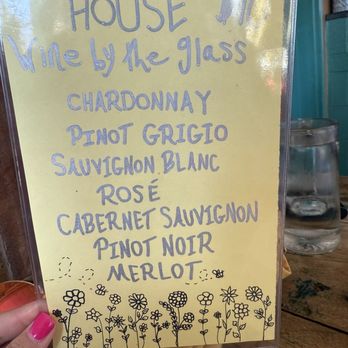 HOUSE
Wine by the glass
CHARDONNAY
PINOT GRIGIO
SAUVIGNON BLANC
ROSÉ
CABERNET SAUVIGNON
PINOT NOIR
MERLOT